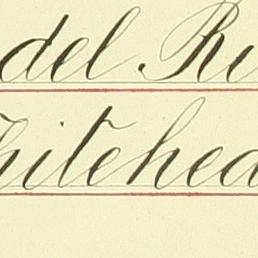 del Ri
hitehea